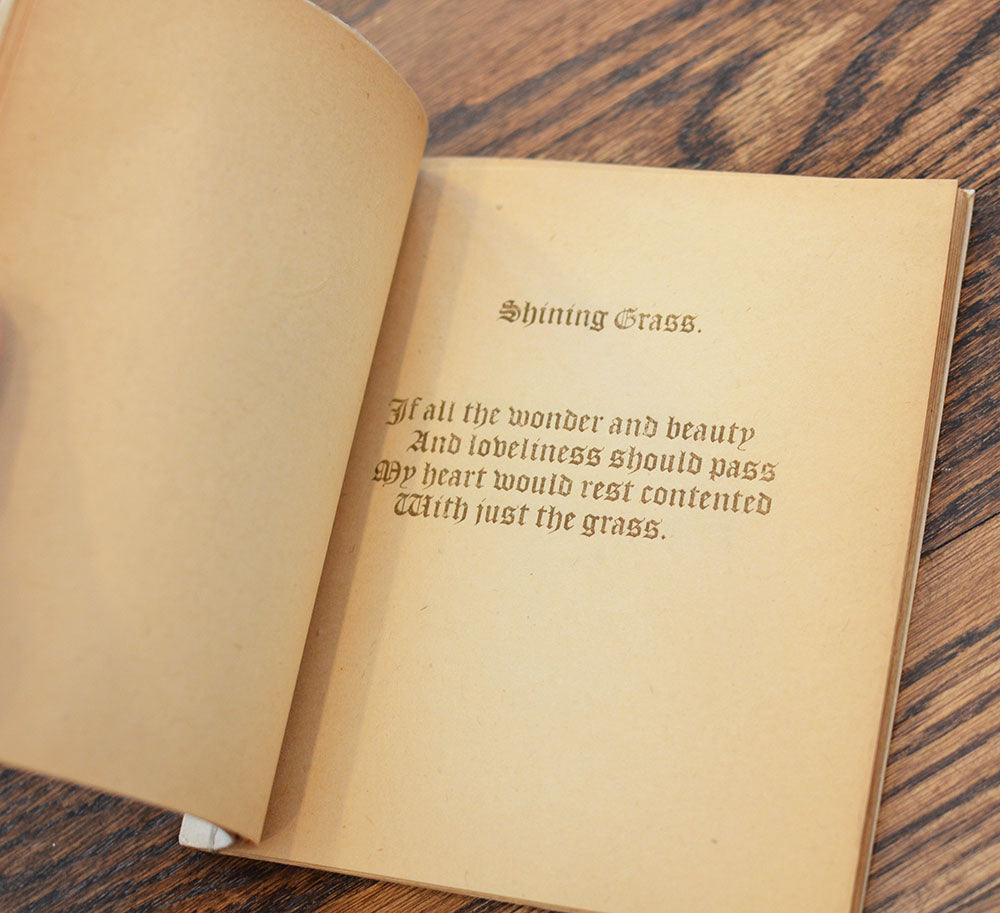 Shining Grass.
If all the wonder and beauty
And loveliness should pass
My heart would rest contented
With just the grass.